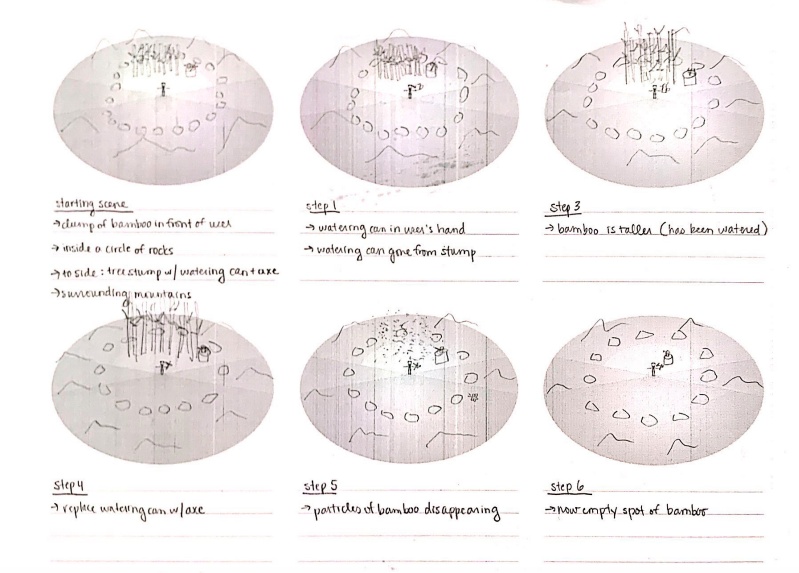 starting scene
→ clump of bamboo in front of user
→ inside a circle of rocks
→ to side: tree stump w/ watering can + axe
→ surrounding mountains
step 1
→ watering can in user's hand
→ watering can gone from stump
step 3
→ bamboo is taller (has been watered)
step 4
→ replace watering can w/ axe
step 5
→ particles of bamboo disappearing
step 6
→ now empty spot of bamboo